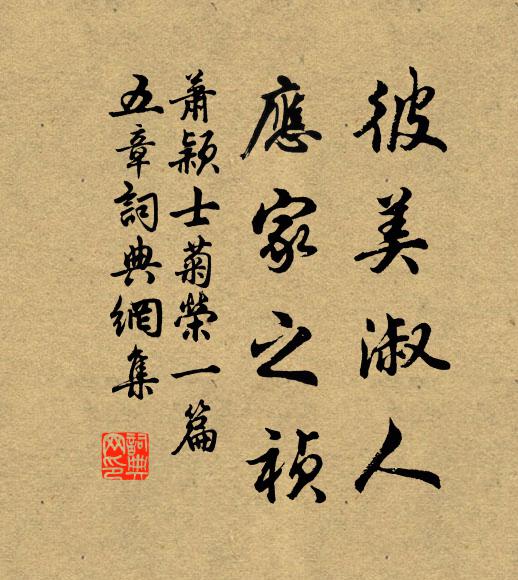 彼美淑人
應家之禎
蕭穎士菊榮一篇
五章詞典網集
詞典網印